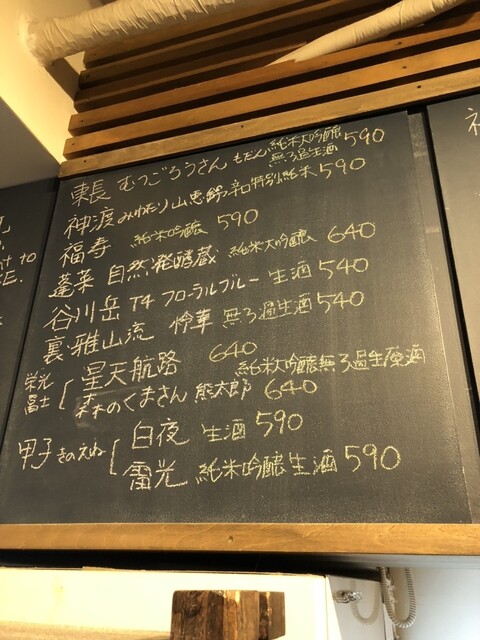 東長 むつごろうさん もだん 純米大吟醸 無ろ過生酒 590
神渡 みわたり 山恵錦 辛口特別純米 590
福寿 純米吟醸 590
蓬莱 自然発酵蔵 純米大吟醸 640
谷川岳 T4 フローラルブルー 生酒 540
裏・雅山流 怜華 無ろ過生酒 540
栄光冨士 星天航路 640 純米大吟醸無ろ過生原酒
森のくまさん 熊太郎 640
甲子 きのえね 白夜 生酒 590
雷光 純米吟醸生酒 590
t to
E.